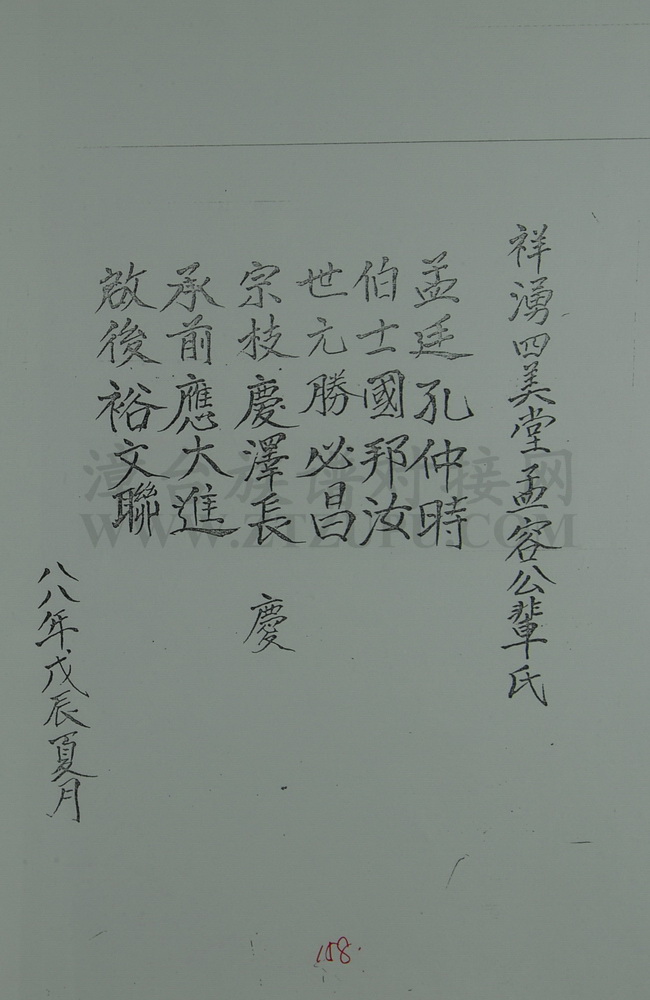 祥湧四美堂孟容公輩氏
孟廷孔仲時
伯士國邦汝
世元勝必昌
宗枝慶澤長
慶
承前應大進
啟後裕文聯
八八年戊辰夏月
漳台族谱对接网
WWW.ZTZUPU.COM
158.